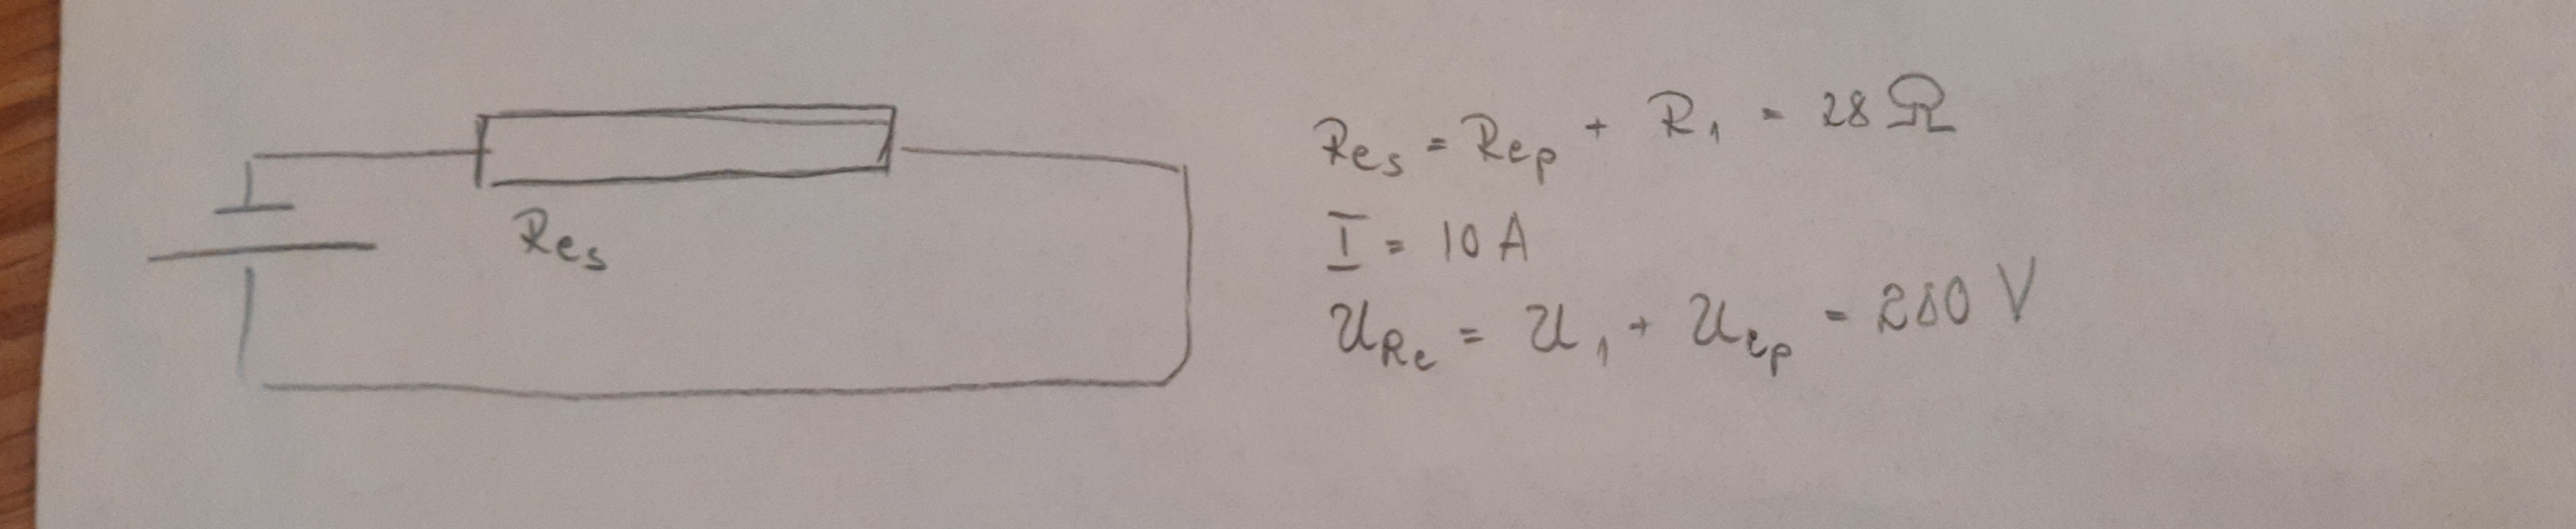 Res
Res = Rep + R1 = 28 Ω
I = 10 A
URe = U1 + Uep = 280 V